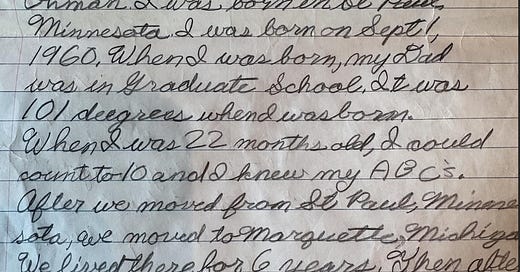 I was born in St Paul,
Minnesota. I was born on Sept 1,
1960. When I was born, my Dad
was in Graduate School. It was
101 deegrees when I was born.
When I was 22 months old, I could
count to 10 and I knew my ABC's.
After we moved from St Paul, Minne
sota, we moved to Marquette, Michiga
We lived there for 6 years. Then afte